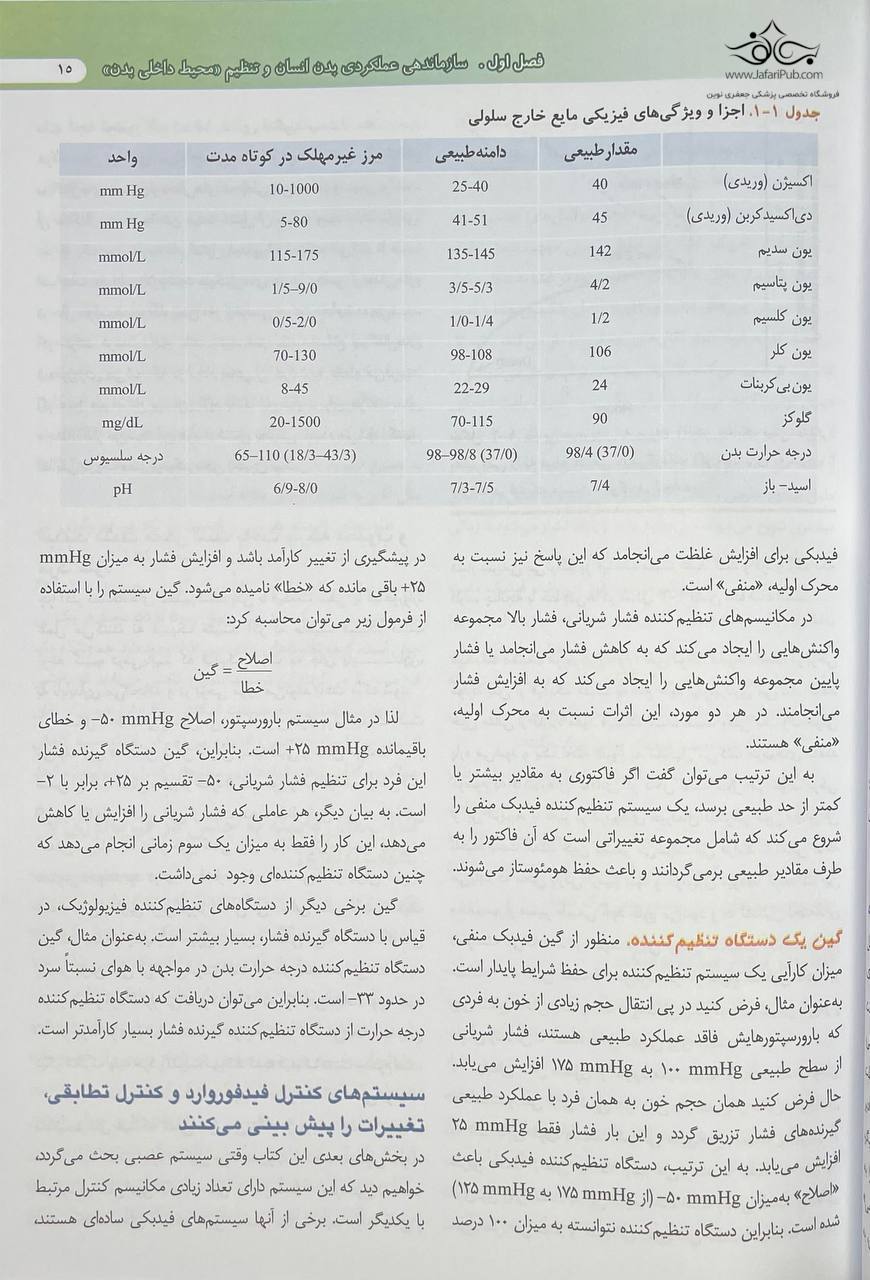 فصل اول. سازماندهی عملکردی بدن انسان و تنظیم «محیط داخلی بدن»
۱۵
www.JafariPub.com
فروشگاه تخصصی پزشکی جعفری نوین
جدول ۱-۱. اجزا و ویژگی‌های فیزیکی مایع خارج سلولی
مقدار طبیعی دامنه طبیعی مرز غیرمهلک در کوتاه مدت واحد
اکسیژن (وریدی) 40 25-40 10-1000 mm Hg
دی‌اکسیدکربن (وریدی) 45 41-51 5-80 mm Hg
یون سدیم 142 135-145 115-175 mmol/L
یون پتاسیم 4/2 3/5-5/3 1/5–9/0 mmol/L
یون کلسیم 1/2 1/0-1/4 0/5-2/0 mmol/L
یون کلر 106 98-108 70-130 mmol/L
یون بی‌کربنات 24 22-29 8-45 mmol/L
گلوکز 90 70-115 20-1500 mg/dL
درجه حرارت بدن 98/4 (37/0) 98–98/8 (37/0) 65–110 (18/3–43/3) درجه سلسیوس
اسید- باز 7/4 7/3-7/5 6/9-8/0 pH
فیدبکی برای افزایش غلظت می‌انجامد که این پاسخ نیز نسبت به
محرک اولیه، «منفی» است.
در مکانیسم‌های تنظیم‌کننده فشار شریانی، فشار بالا مجموعه
واکنش‌هایی را ایجاد می‌کند که به کاهش فشار می‌انجامد یا فشار
پایین مجموعه واکنش‌هایی را ایجاد می‌کند که به افزایش فشار
می‌انجامند. در هر دو مورد، این اثرات نسبت به محرک اولیه،
«منفی» هستند.
به این ترتیب می‌توان گفت اگر فاکتوری به مقادیر بیشتر یا
کمتر از حد طبیعی برسد، یک سیستم تنظیم‌کننده فیدبک منفی را
شروع می‌کند که شامل مجموعه تغییراتی است که آن فاکتور را به
طرف مقادیر طبیعی برمی‌گردانند و باعث حفظ هومئوستاز می‌شوند.
گین یک دستگاه تنظیم‌کننده. منظور از گین فیدبک منفی،
میزان کارآیی یک سیستم تنظیم‌کننده برای حفظ شرایط پایدار است.
به‌عنوان مثال، فرض کنید در پی انتقال حجم زیادی از خون به فردی
که بارورسپتورهایش فاقد عملکرد طبیعی هستند، فشار شریانی
از سطح طبیعی ۱۰۰ mmHg به ۱۷۵ mmHg افزایش می‌یابد.
حال فرض کنید همان حجم خون به همان فرد با عملکرد طبیعی
گیرنده‌های فشار تزریق گردد و این بار فشار فقط ۲۵ mmHg
افزایش می‌یابد. به این ترتیب، دستگاه تنظیم‌کننده فیدبکی باعث
«اصلاح» به‌میزان ۵۰ mmHg- (از ۱۷۵ mmHg به ۱۲۵ mmHg)
شده است. بنابراین دستگاه تنظیم‌کننده نتوانسته به میزان ۱۰۰ درصد
در پیشگیری از تغییر کارآمد باشد و افزایش فشار به میزان mmHg
۲۵+ باقی مانده که «خطا» نامیده می‌شود. گین سیستم را با استفاده
از فرمول زیر می‌توان محاسبه کرد:
گین = اصلاح
خطا
لذا در مثال سیستم بارورسپتور، اصلاح ۵۰ mmHg- و خطای
باقیمانده ۲۵ mmHg+ است. بنابراین، گین دستگاه گیرنده فشار
این فرد برای تنظیم فشار شریانی، ۵۰- تقسیم بر ۲۵+، برابر با ۲-
است. به بیان دیگر، هر عاملی که فشار شریانی را افزایش یا کاهش
می‌دهد، این کار را فقط به میزان یک سوم زمانی انجام می‌دهد که
چنین دستگاه تنظیم‌کننده‌ای وجود نمی‌داشت.
گین برخی دیگر از دستگاه‌های تنظیم‌کننده فیزیولوژیک، در
قیاس با دستگاه گیرنده فشار، بسیار بیشتر است. به‌عنوان مثال، گین
دستگاه تنظیم‌کننده درجه حرارت بدن در مواجهه با هوای نسبتاً سرد
در حدود ۳۳- است. بنابراین می‌توان دریافت که دستگاه تنظیم‌کننده
درجه حرارت از دستگاه تنظیم‌کننده گیرنده فشار بسیار کارآمدتر است.
سیستم‌های کنترل فیدفوروارد و کنترل تطابقی،
تغییرات را پیش بینی می‌کنند
در بخش‌های بعدی این کتاب وقتی سیستم عصبی بحث می‌گردد،
خواهیم دید که این سیستم دارای تعداد زیادی مکانیسم کنترل مرتبط
با یکدیگر است. برخی از آنها سیستم‌های فیدبکی ساده‌ای هستند،